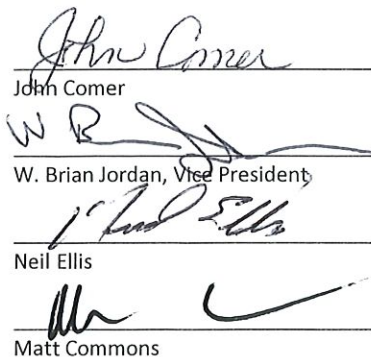 John Comer
John Comer
W. Brian Jordan, Vice President
Neil Ellis
Neil Ellis
Matt Commons